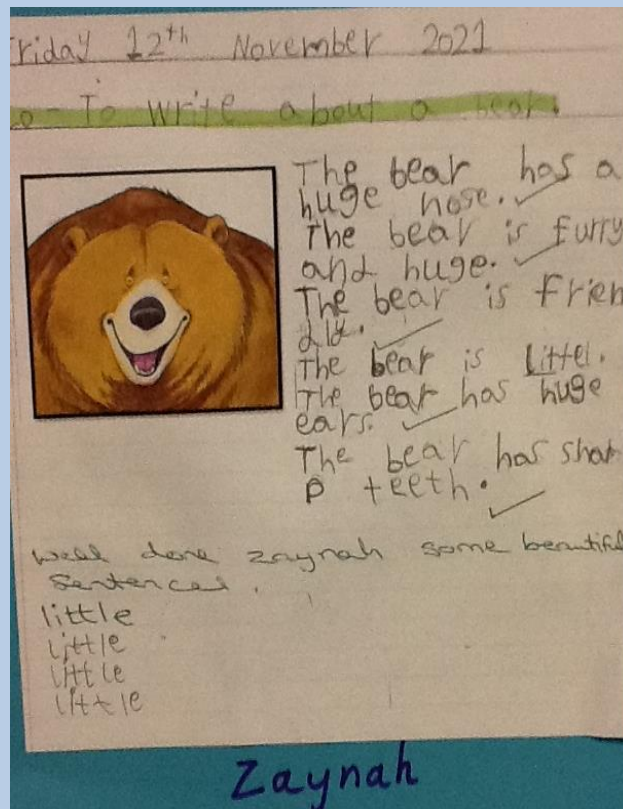 riday 12th November 2021
o - To write about a bear.
The bear has a
huge nose.
The bear is furry
and huge.
The bear is frien
dly.
The bear is littel.
The bear has huge
ears.
The bear has shar
p teeth.
well done zaynah some beautiful
sentences.
little
little
little
little
Zaynah